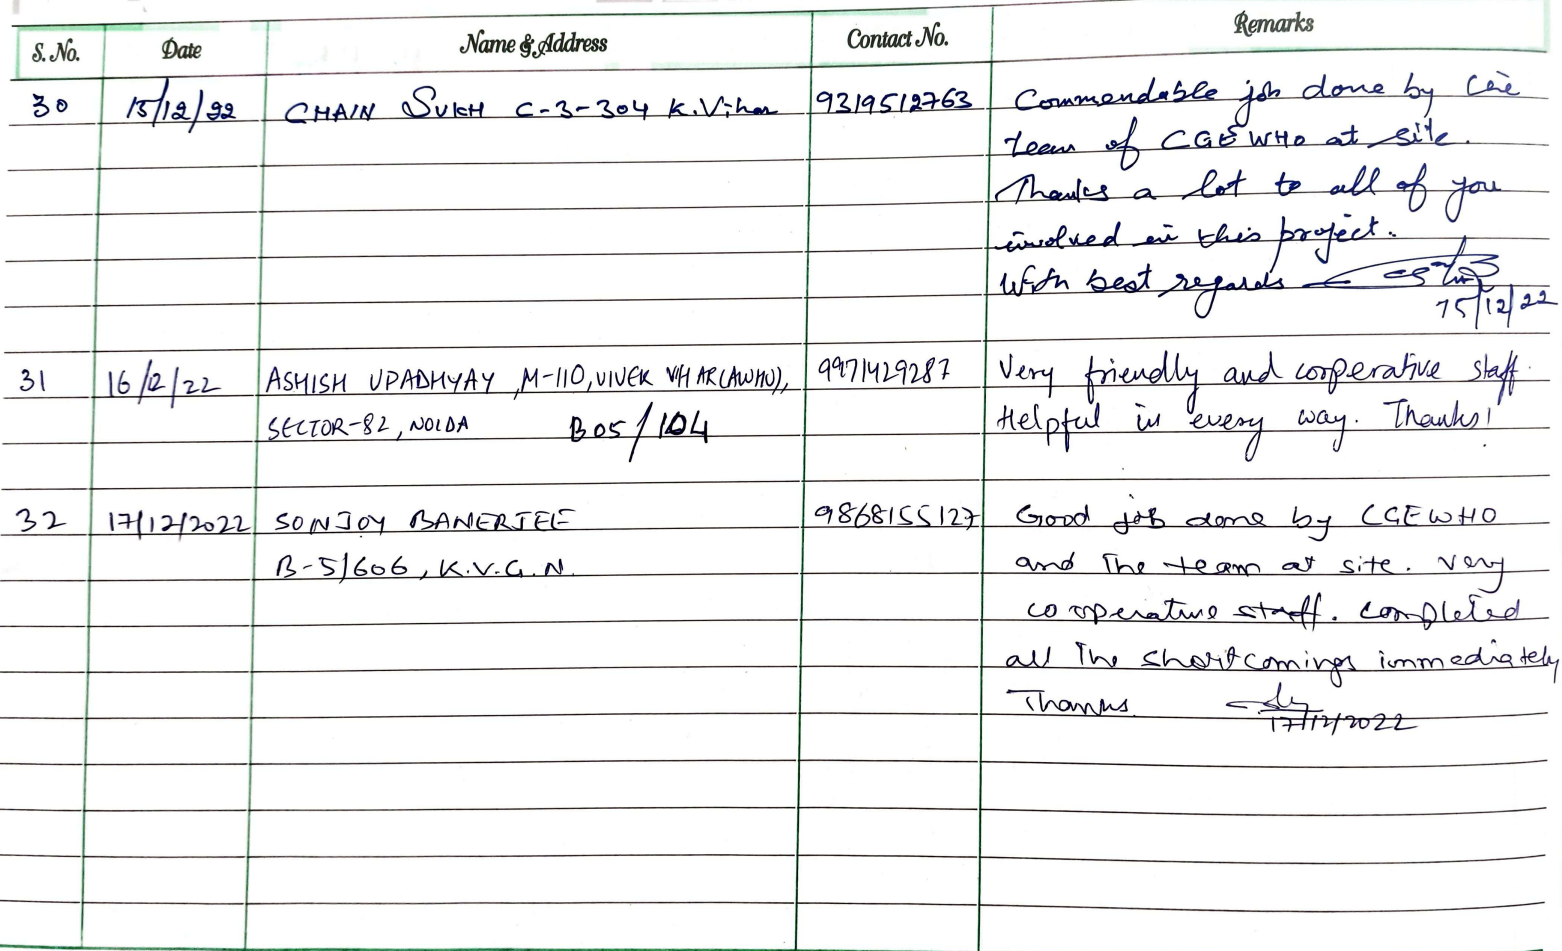 S. No. Date Name & Address Contact No. Remarks
30 15/12/22 CHAIN SUKH C-3-304 K.Vihar 9319512763 Commendable job done by the
team of CGEWHO at site.
Thanks a lot to all of you
involved in this project.
With best regards
15/12/22
31 16/2/22 ASHISH UPADHYAY, M-110, VIVEK VIHAR (AWHO), 9971429287 Very friendly and cooperative staff.
SECTOR-82, NOIDA B05/104 Helpful in every way. Thanks!
32 17/12/2022 SONJOY BANERJEE 9868155127 Good job done by CGEWHO
B-5/606, K.V.G.N. and The team at site. very
cooperative staff. completed
all The shortcomings immediately
Thanks.
17/12/2022